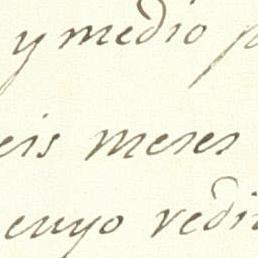 y medio p
eis meses
cuyo redi